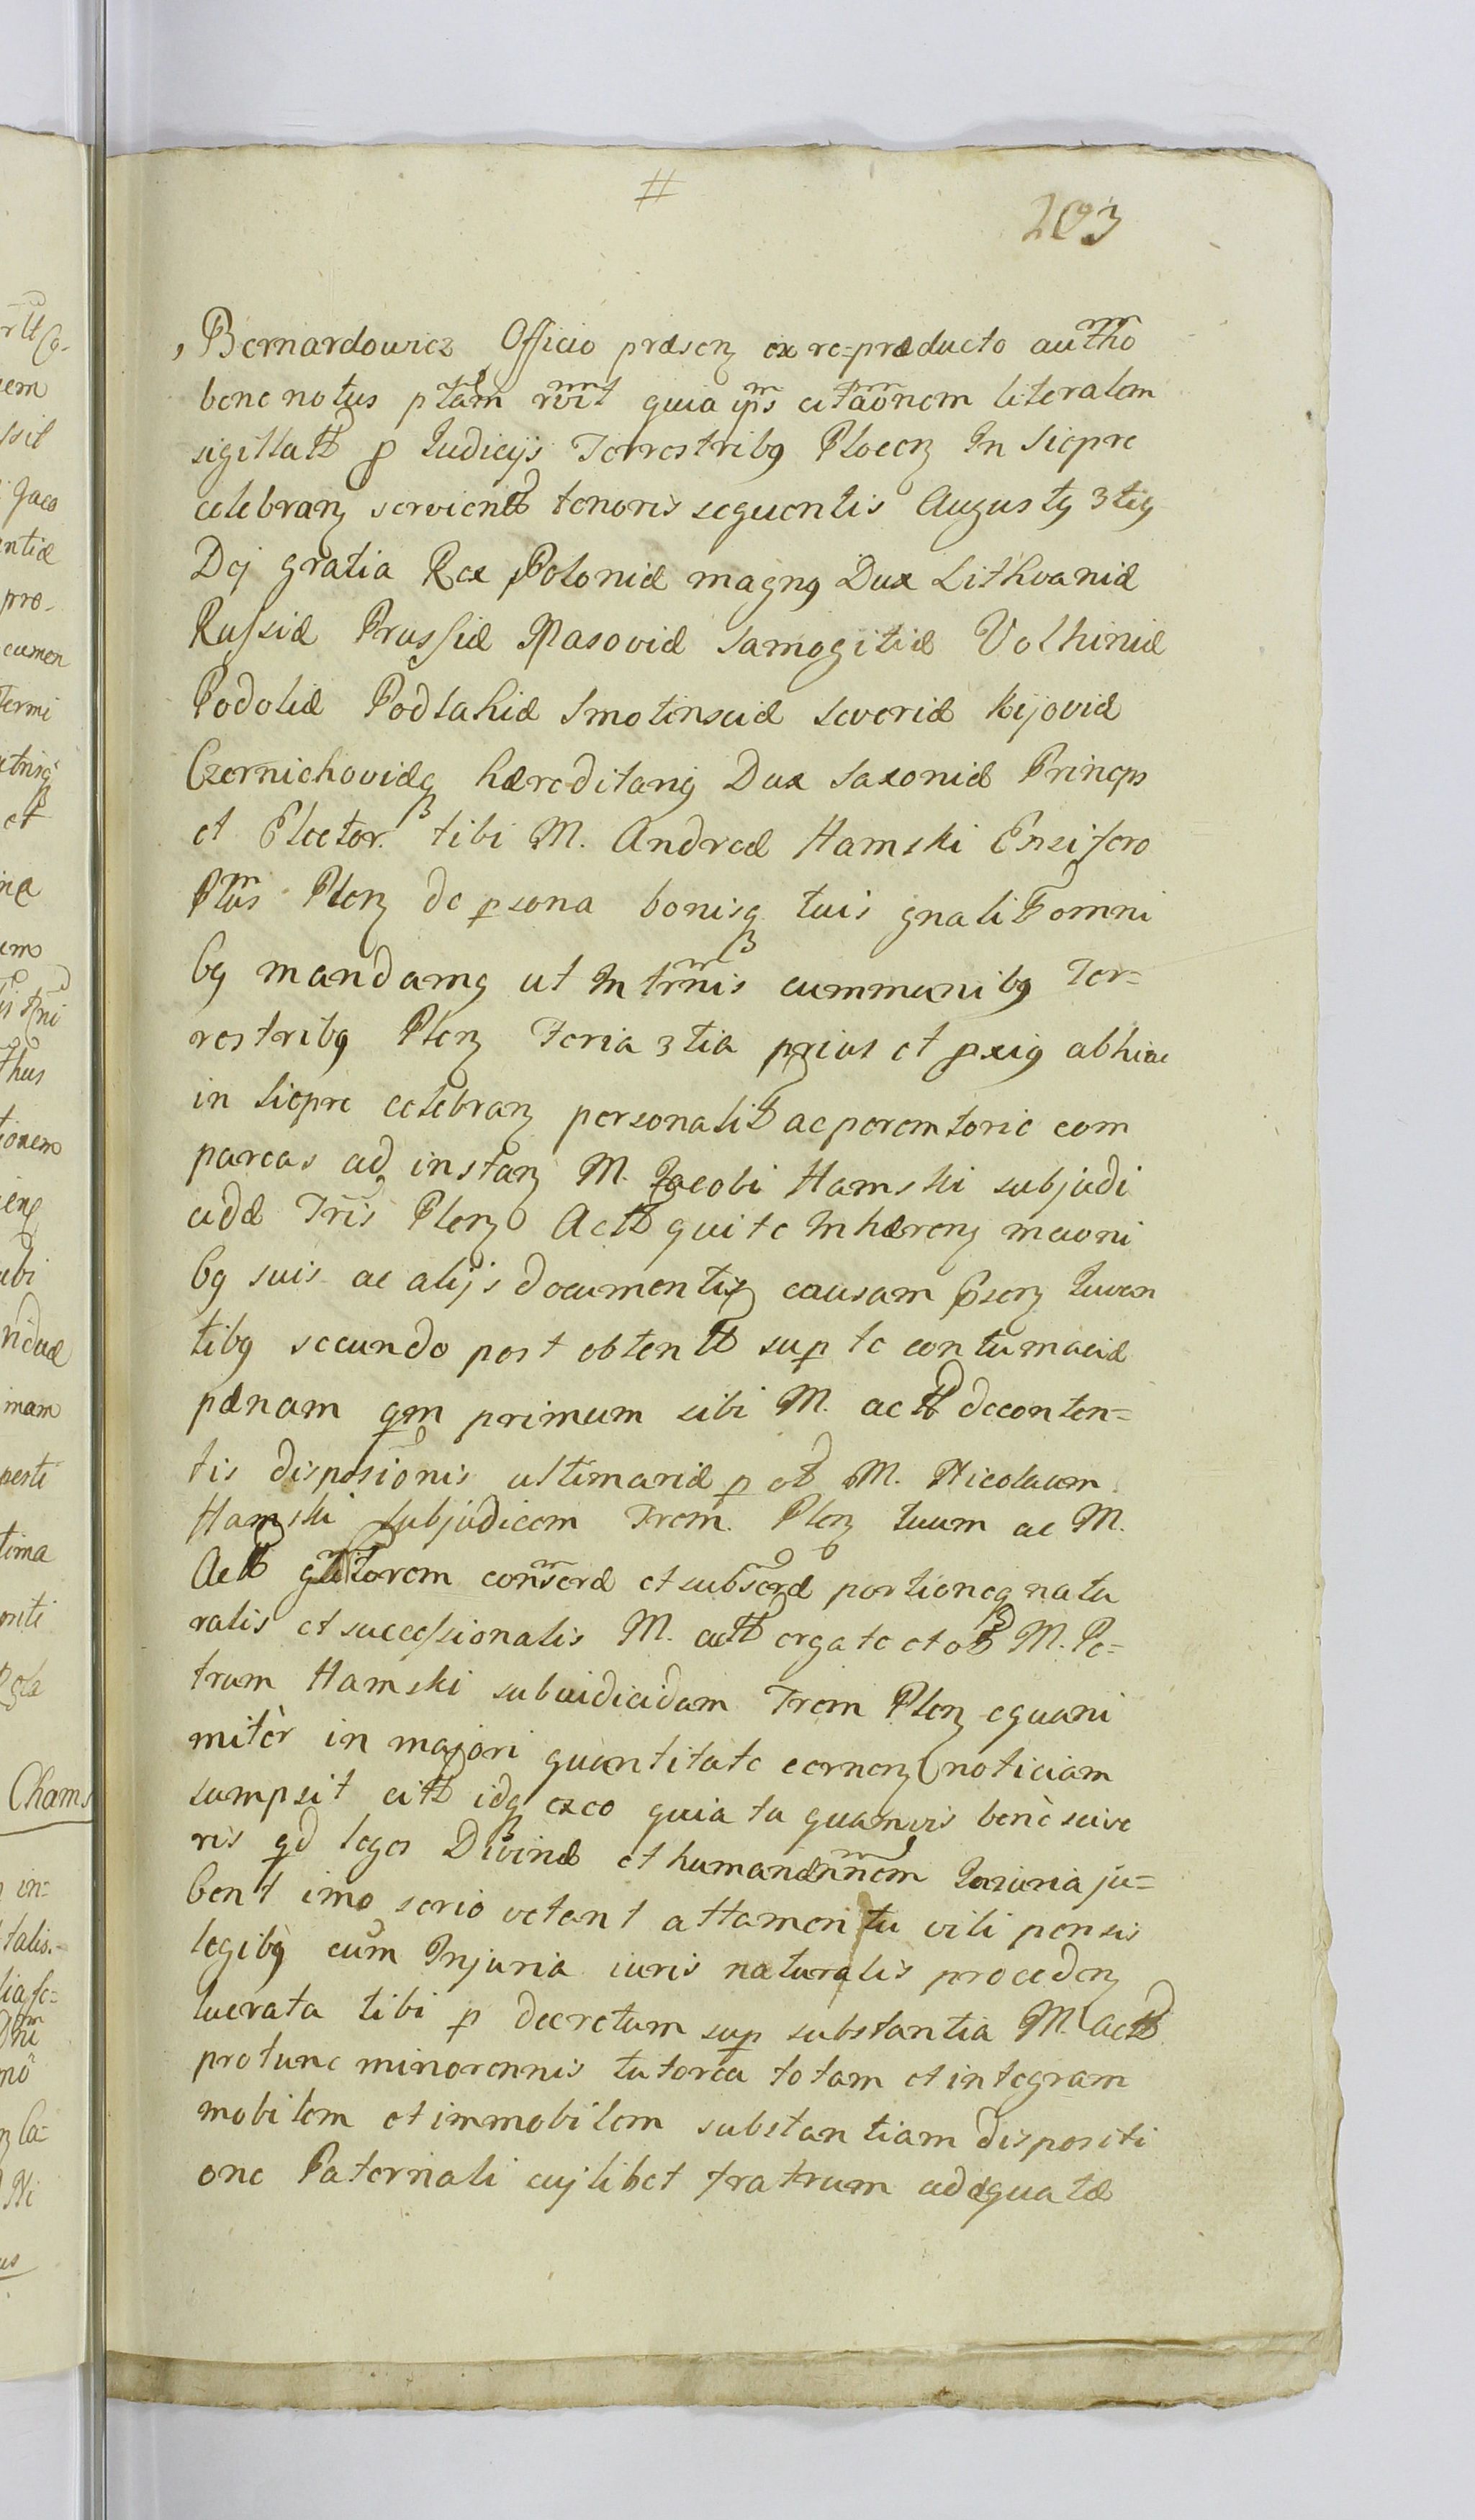 #
203
Bernardowicz Officio præsenz ex re=præducto autho
bene notus ptam rvit quia ips citaonem literalem
sigillatt p Iudicijs Terrestribq Plocenz In Siepre
celebranz servientt tenoris sequentis Augustq 3tiq
Dej gratia Rex Poloniæ magnq Dux Lithvaniæ
Russiæ Prussiæ Masoviæ Samogitiæ Volhiniæ
Podoliæ Podlahiæ Smolensciæ Severiæ Kijoviæ
Czernichoviæq hæreditariq Dux Saxoniæ Princeps
et Elector. tibi M. Andreæ Hamski Ensifero
Plens Plenz de psona bonisq tuis gnalitt omni
bq mandamq ut In trnis cummunibq Ter=
restribq Plenz Feria 3tia prius et pxiq abhinc
in Siepre celebranz personalitt ac peremtorie com
pareas ad instanz M. Jacobi Hamski subjudi
cidæ Tris Plenz Actt qui te Inhærenz mauni
bq suis ac alijs documentis causam psenz Iuvan
tibq secundo post obtentt sup te contumaciæ
pænam qm primum sibi M. actt de conten=
tis disposionis ultimariæ p ott M. Nicolaum
Hamski Subjudicem Trem. Plenz tuum ac M.
Actt gtitorem conseræ et subseræ portioneq natu
ralis et successionalis M. actt erga te et ott M. Pe=
trum Hamski subiudicidam Trem Plenz equani
mitèr in majori quantitate cernenz noticiam
sumpsit citt idq exeo quia tu quamvis benè scive
ris qd leges Divinæ et humanæ nnem Iniuria ju=
bent imo serio vetant attamen tu vili pensis
legibq cum Injuria iuris naturalis procedenz
lucrata tibi p decretum sup substantia M. actt
protunc minorennis tutorea totam et integram
mobilem et immobilem substantiam dispositi
one Paternali cujlibet fratrum adæquatæ